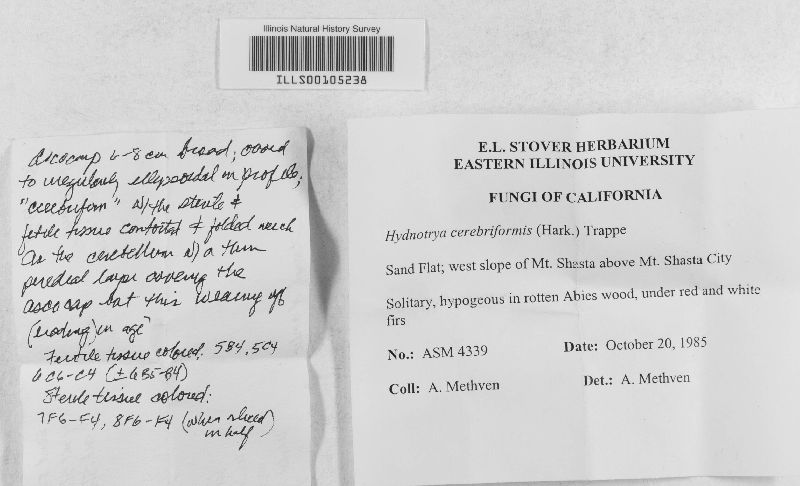 Illinois Natural History Survey
ILLS00105238
Ascocarp 6-8 cm broad; ovoid
to irregularly ellipsoidal in profile;
"cerebriform" w/ the sterile &
fertile tissue contorted & folded much
as the cerebellum w/ a thin
peridial layer covering the
ascocap but this wearing off
(eroding) in age
Fertile tissue colored: 5B4, 5C4
6C6-C4 (±6B5-B4)
Sterile tissue colored:
7F6-F4, 8F6-F4 (when sliced
in half)
E.L. STOVER HERBARIUM
EASTERN ILLINOIS UNIVERSITY
FUNGI OF CALIFORNIA
Hydnotrya cerebriformis (Hark.) Trappe
Sand Flat; west slope of Mt. Shasta above Mt. Shasta City
Solitary, hypogeous in rotten Abies wood, under red and white
firs
No.: ASM 4339 Date: October 20, 1985
Coll: A. Methven Det.: A. Methven